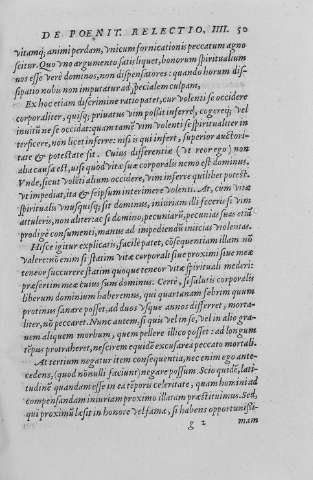 DE POENIT. RELECTIO. IIII. 50
vitamq; animi perdam, vnicum fornicationis peccatum agno
scitur. Quo vno argumento satis liquet, bonorum spiritualium
nos esse verè dominos, non dispensatores: quando horum dis-
sipatio nobis non imputatur ad specialem culpam,
Ex hoc etiam discrimine ratio patet, cur volenti se occidere
corporaliter, quisq; priuatus vim possit inferre, cogereq; vel
inuitũ ne se occidat: quam tamẽ vim volenti se spiritualiter in
terficere, non licet inferre: nisi is qui infert, superior auctori-
tate & potestate sit. Cuius differentiæ (vt reor ego) non
alia causa est, nisi quòd vitæ suæ corporalis nemo est dominus.
Vnde, sicut volẽti alium occidere, vim inferre quilibet potest.
vt impediat, ita & seipsum interimere volenti. At, cum vitæ
spiritualis vnusquisq; sit dominus, iniuriam illi feceris si vim
attuleris, non aliter: ac si domino, pecuniarũ, pecunias suas etiã
prodigè consumenti, manus ad impediendũ iniicias violentas.
Hisce igitur explicatis, facilè patet, cõsequentiam illam nõ
valere: nõ enim si statim vitæ corporali siue proximi siue meæ
teneor succurere statim quoque teneor vitæ spirituali mederi:
præsertim meæ cuius sum dominus. Certè, si salutis corporalis
liberum dominium haberemus, qui quartanam febrim quum
protinus sanare posset, ad duos vsque annos differret, morta-
liter, nõ peccaret. Nunc autem, si quis vel in se, vel in alio gra-
uem aliquem morbum, quem pellere illico posset: ad longum
tẽpus protraheret, nescirem equidẽ excusare à peccato mortali.
At tertium negatur item consequentia, nec enim ego ante-
cedens, (quod nõnulli faciunt) negare possum Scio quidẽ, lati-
tudinẽ quandam esse in ea tẽporis celeritate, quam homini ad
compensandam iniuriam proximo illatam præstituimus. Sed,
qui proximũ læsit in honore vel fama, si habens opportunissi-
g 2 mam